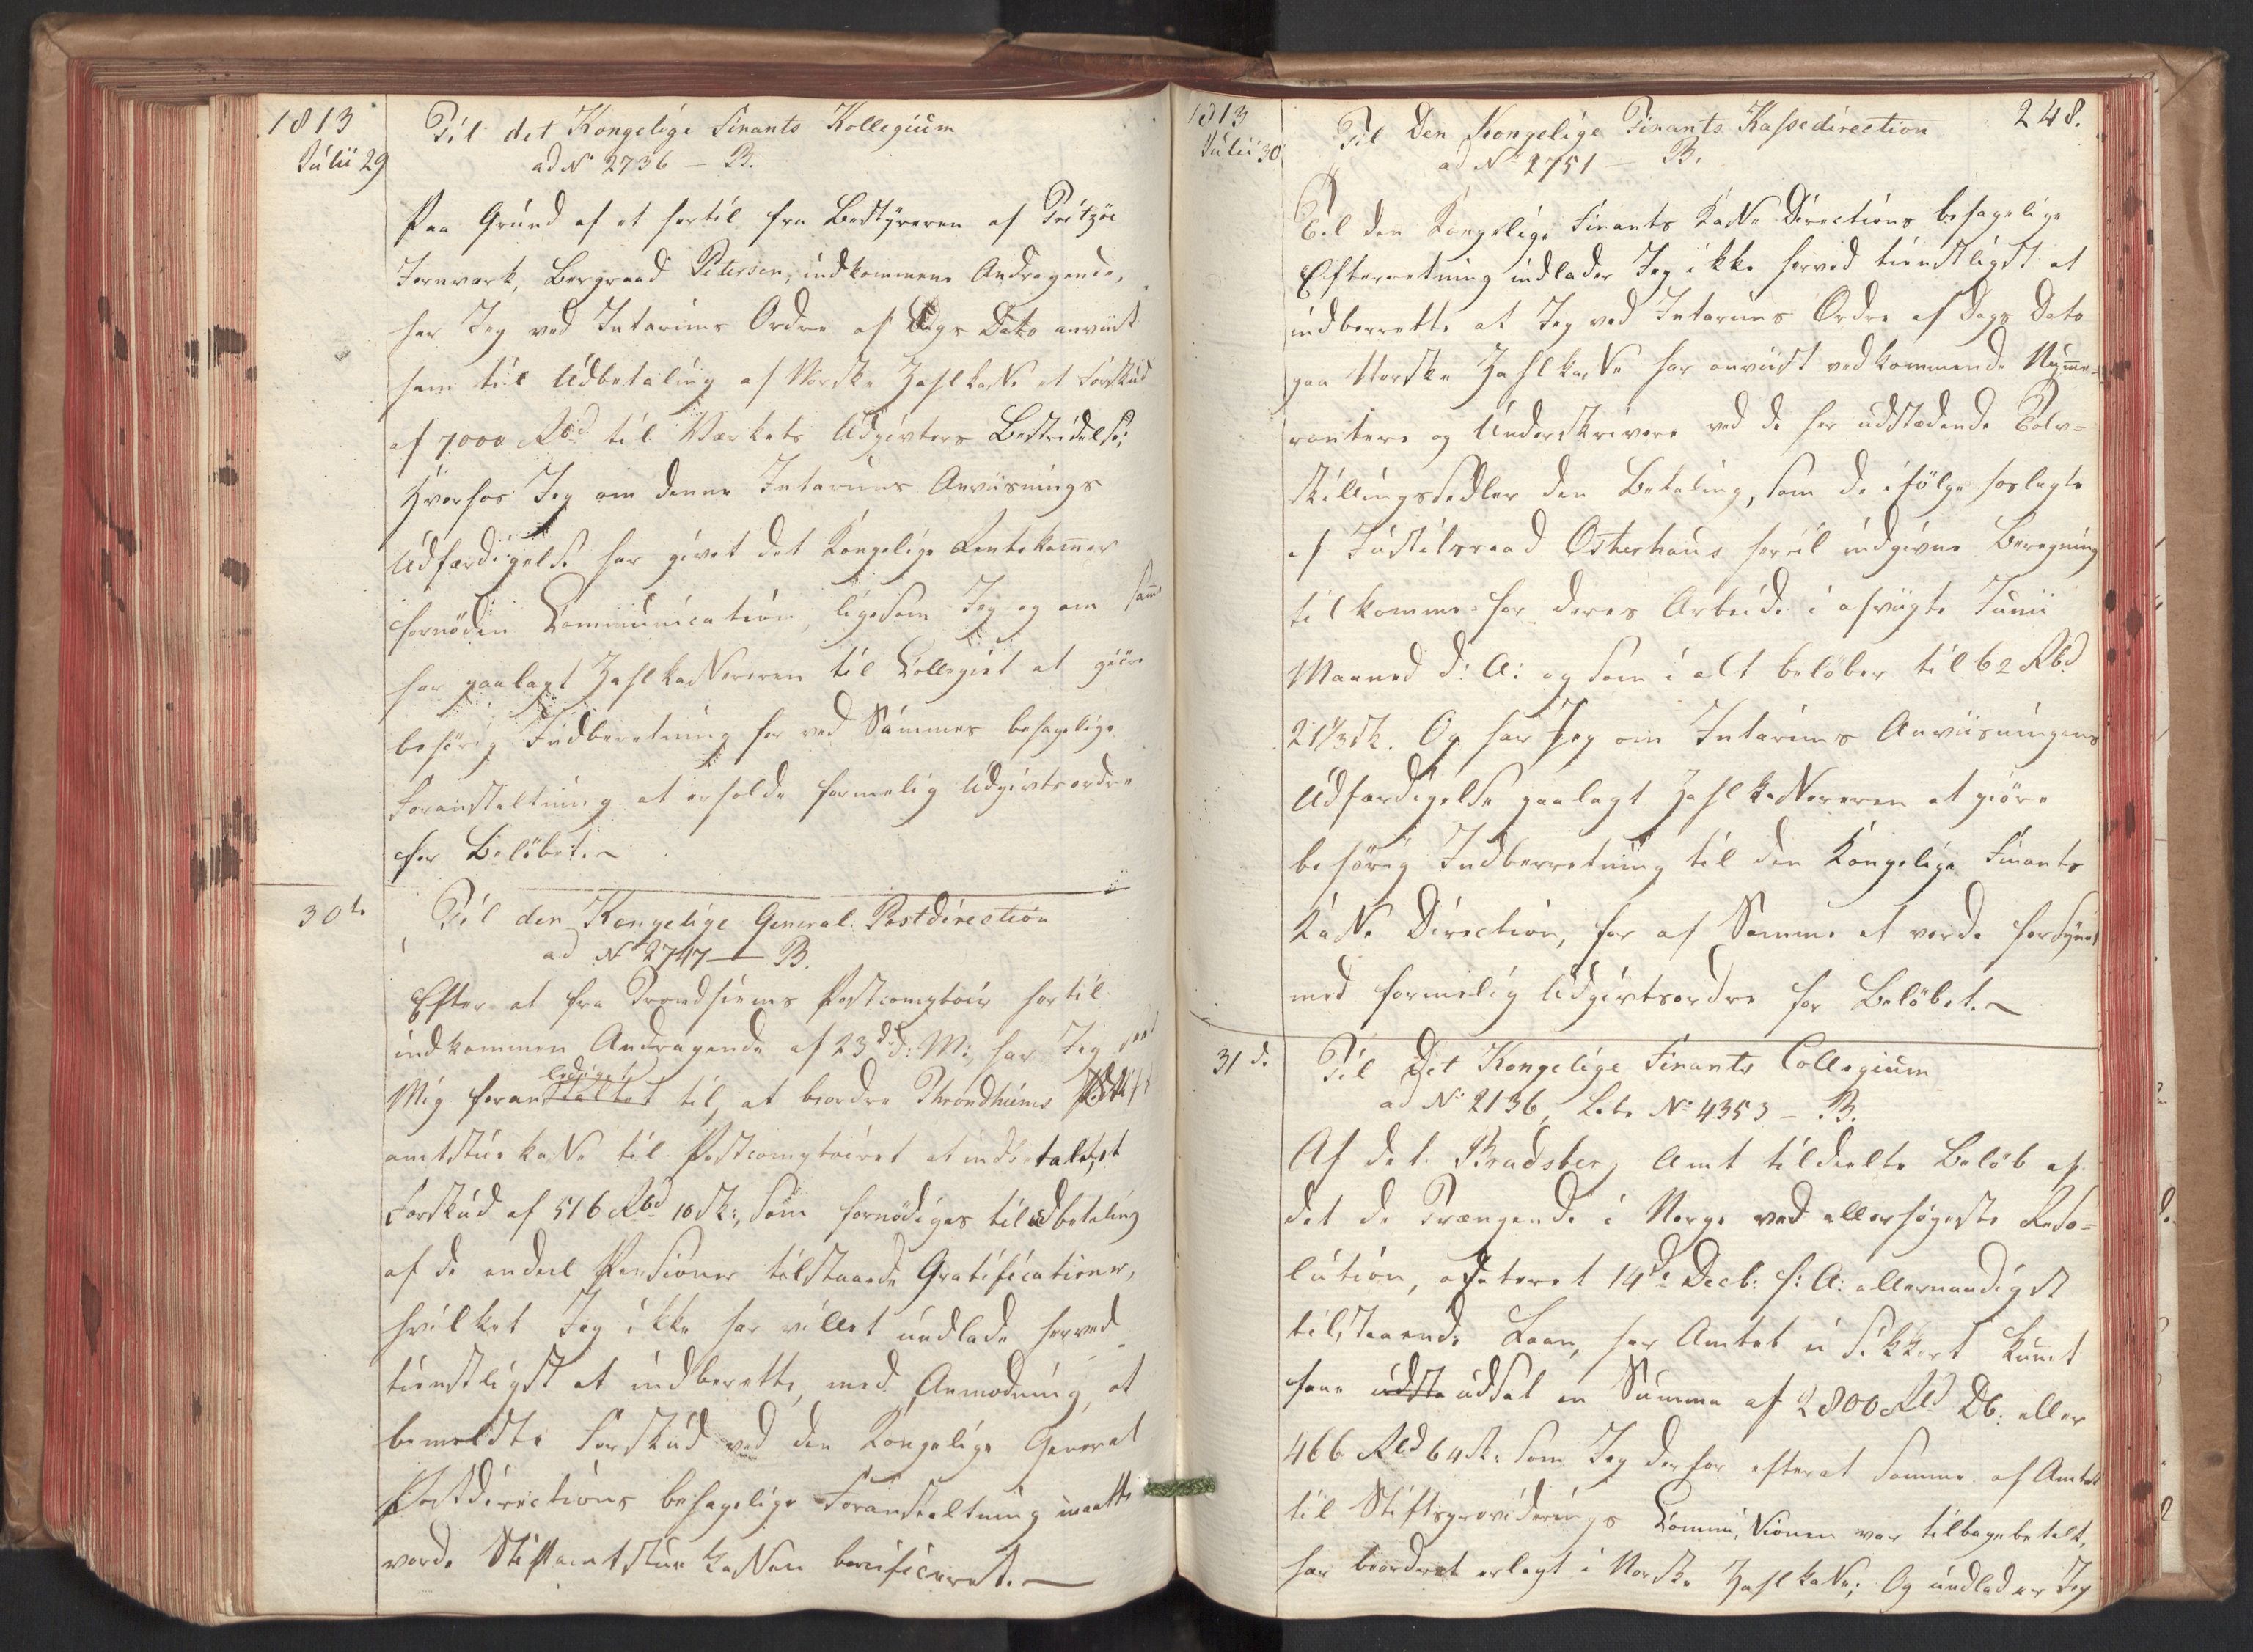 1813
Julii 29
Til det Kongelige Finants Kollegium
ad No 2736 – B.
Paa Grund af et hertil fra Bestyreren af Fritzøe
Jernværk, Bergraad Petersen, indkommene Andragende,
har Jeg ved Interims Ordre af Dags Dato anviist
ham til Udbetaling af Norske Zahlkasse et Forskud
af 7000 Rbd til Værkets Udgivters Bestridelse;
Hvorhos Jeg om denne Interims Anviisnings
Udfærdigelse har givet det Kongelige Rentekammer
fornöden Communication, ligesom Jeg og om samme
har paalagt Zahlkassereren til Collegiet at giöre
behörig Indberetning for ved Sammes behagelige
Foranstaltning at erholde formelig Udgivtsordre
for Belöbet.
30te
Til den Kongelige General Postdirection
ad No 2747 – B.
Efter et fra Trondhiems Postcomptoir hertil
indkommen Andragende af 23de d: M:, har Jeg seet
Mig foranstaltet lediget til, at beordre Throndhiems Stift
amtstue kasse til Postcomptoiret at indbetale et
Forskud af 516 Rbd 10 sk:, som fornödiges til Udbetaling
af de endeel Personer tilstaaede Gratificationer,
hvilket Jeg ikke har villet undlade herved
tienstligst at indberette, med Anmodning, at
bemeldte Forskud ved den Kongelige General
Postdirections behagelige Foranstaltning maatte
vorde Stiftamtstue Kassen bonificeret.
1813
Julii 30
248.
Til Den Kongelige Finants Kassedirection
ad No 2751 – B.
Til den Kongelige Finants Kasse Directions behagelige
Efterretning undlader Jeg ikke herved tienstligst at
indberrette at Jeg ved Interims Ordre af Dags Dato
paa Norske Zahlkasse har anviist vedkommende Numme=
rantere og Underskrivere ved de her udstædende Tolv=
skillingssedler den Betaling, som de ifölge hoslagte
af Justitsraad Osterhaus hertil indgivne Beregning
tilkomme for deres Arbeide i afvigte Junii
Maaned d: A: og som i alt belöber til 62 Rbd
21 1/3 sk. Og har Jeg om Interims Anviisningens
Udfærdigelse paalagt Zahlkassereren at giöre
behörig Indberretning til den Kongelige Finants
Kasse Direction, for af Samme at vorde forsynet
med formelig Udgivtsordre for Belöbet.
31 d.
Til Det Kongelige Finants Collegium
ad No 2136, L. No 4353 – B.
Af det Bradsberg Amt tildeelte Belöb af
det de Trængende i Norge ved allerhöyeste Reso=
lution, dateret 14de Decb: f: A: allernaadigst
tilstaaende Laan, har Amtet ei sikkert kunnet
faae udsta udsat en Summa af 2800 Rd Dc: eller
466 Rbd 64 sk: som Jeg derfor efterat Samme af Amtet
til Stiftsproviderings Commissionen var tilbagebetalt,
har beordret erlagt i Norske Zahlkasse; Og undlader Jeg